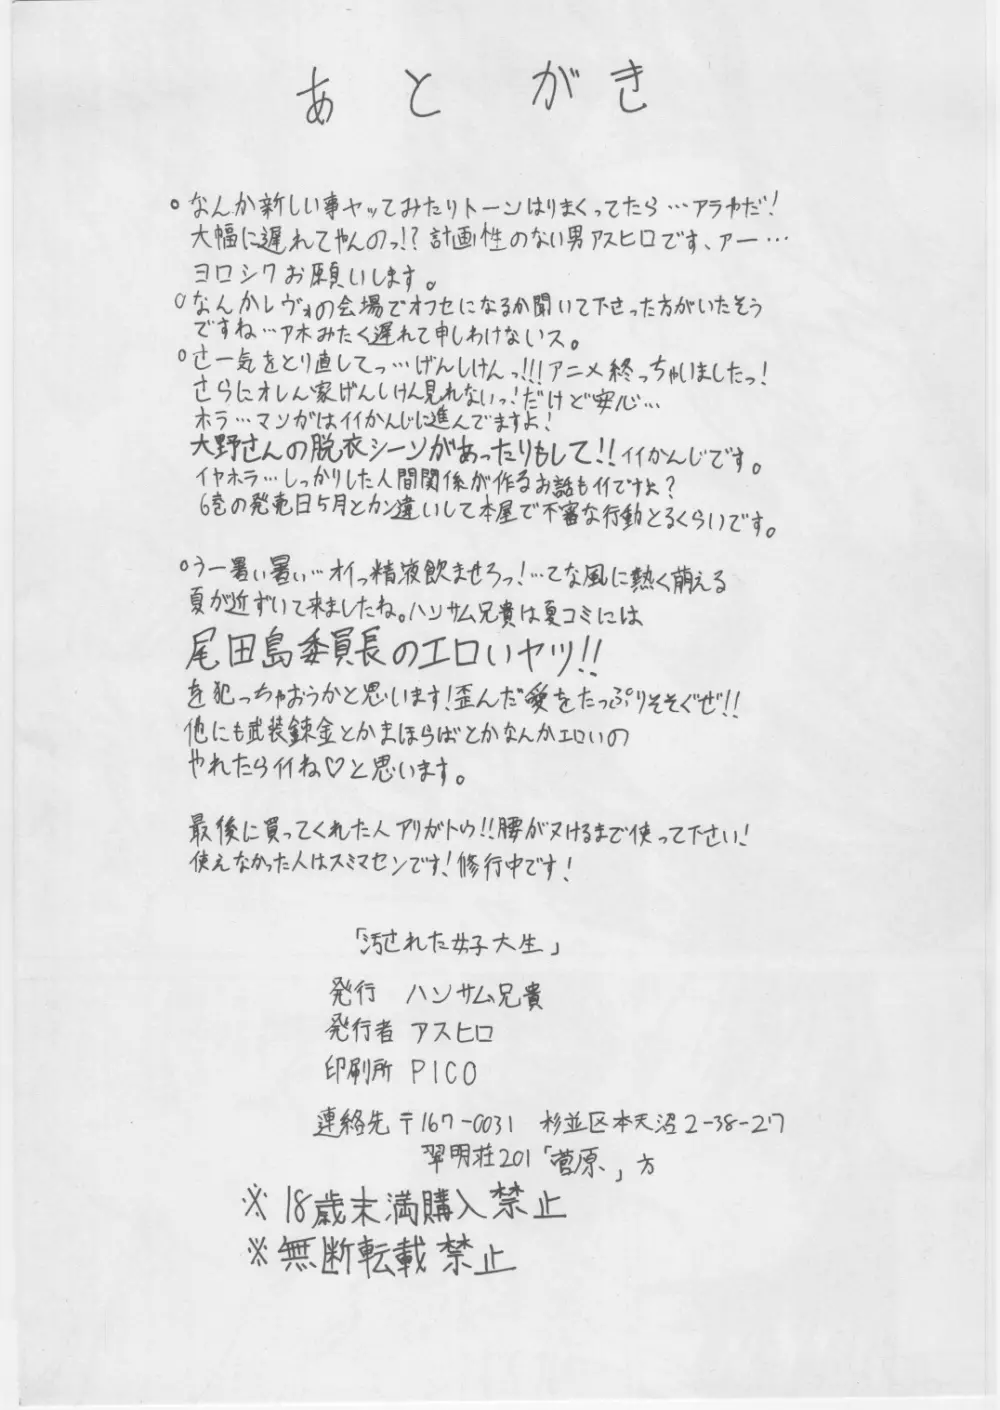 あとがき
○なんか新しい事ヤッてみたりトーンはりまくってたら…アラヤだ!
大幅に遅れてやんのっ!?計画性のない男アスヒロです、ァー…
ヨロシクお願いします。
○なんかレヴォの会場でオフセになるか聞いて下さった方がいたそう
ですね…アホみたく遅れて申しわけないス。
○さー気をとり直してっ…げんしけんっ!!!アニメ終っちゃいましたっ!
さらにオレん家げんしけん見れないっ!だけど安心…
ホラ…マンガはイイかんじに進んでますよ!
大野さんの脱衣シーンがあったりもして!!イイかんじです。
イヤホラ…しっかりした人間関係が作るお話もイイですよ?
6巻の発売日5月とカン違いして本屋で不審な行動とるくらいです。
○うー暑い暑ぃ…オイっ精液飲ませろっ!…てな風に熱く萌える
夏が近ずいて来ましたね。ハンサム兄貴は夏コミには
尾田島委員長のエロいヤツ!!
を犯っちゃおうかと思います!歪んだ愛をたっぷりそそぐぜ!!
他にも武装錬金とかまほらばとかなんかエロいの
やれたらイイね♡と思います。
最後に買ってくれた人アリがトゥ!!腰がヌけるまで使って下さい!
使えなかった人はスミマセンです!修行中です!
「汚された女子大生」
発行 ハンサム兄貴
発行者 アスヒロ
印刷所 PICO
連絡先 〒167-0031 杉並区本天沼2-38-27
翠明荘201「菅原」方
※18歳未満購入禁止
※無断転載禁止